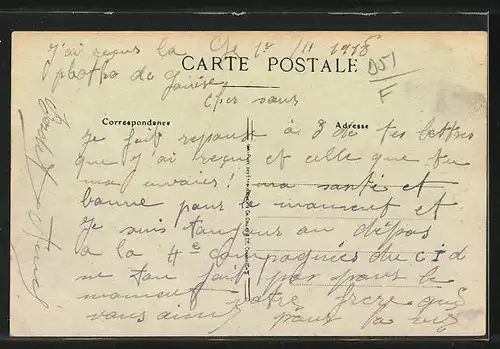 J'ai reçus la
photho de Janise
Le 1er /11 1918
CARTE POSTALE
D51
F
cher sœus
Correspondance
Adresse
Je fait reponse à 3 de tes lettres
que j'ai reçus et celle que tu
ma envoies! ma santé et
banne pour le manment et
Je suis toujours au dépos
a la 4e compagnies du C I D
ne ton fait pas pour le
manment votre frere qui
vous aime pour la vie